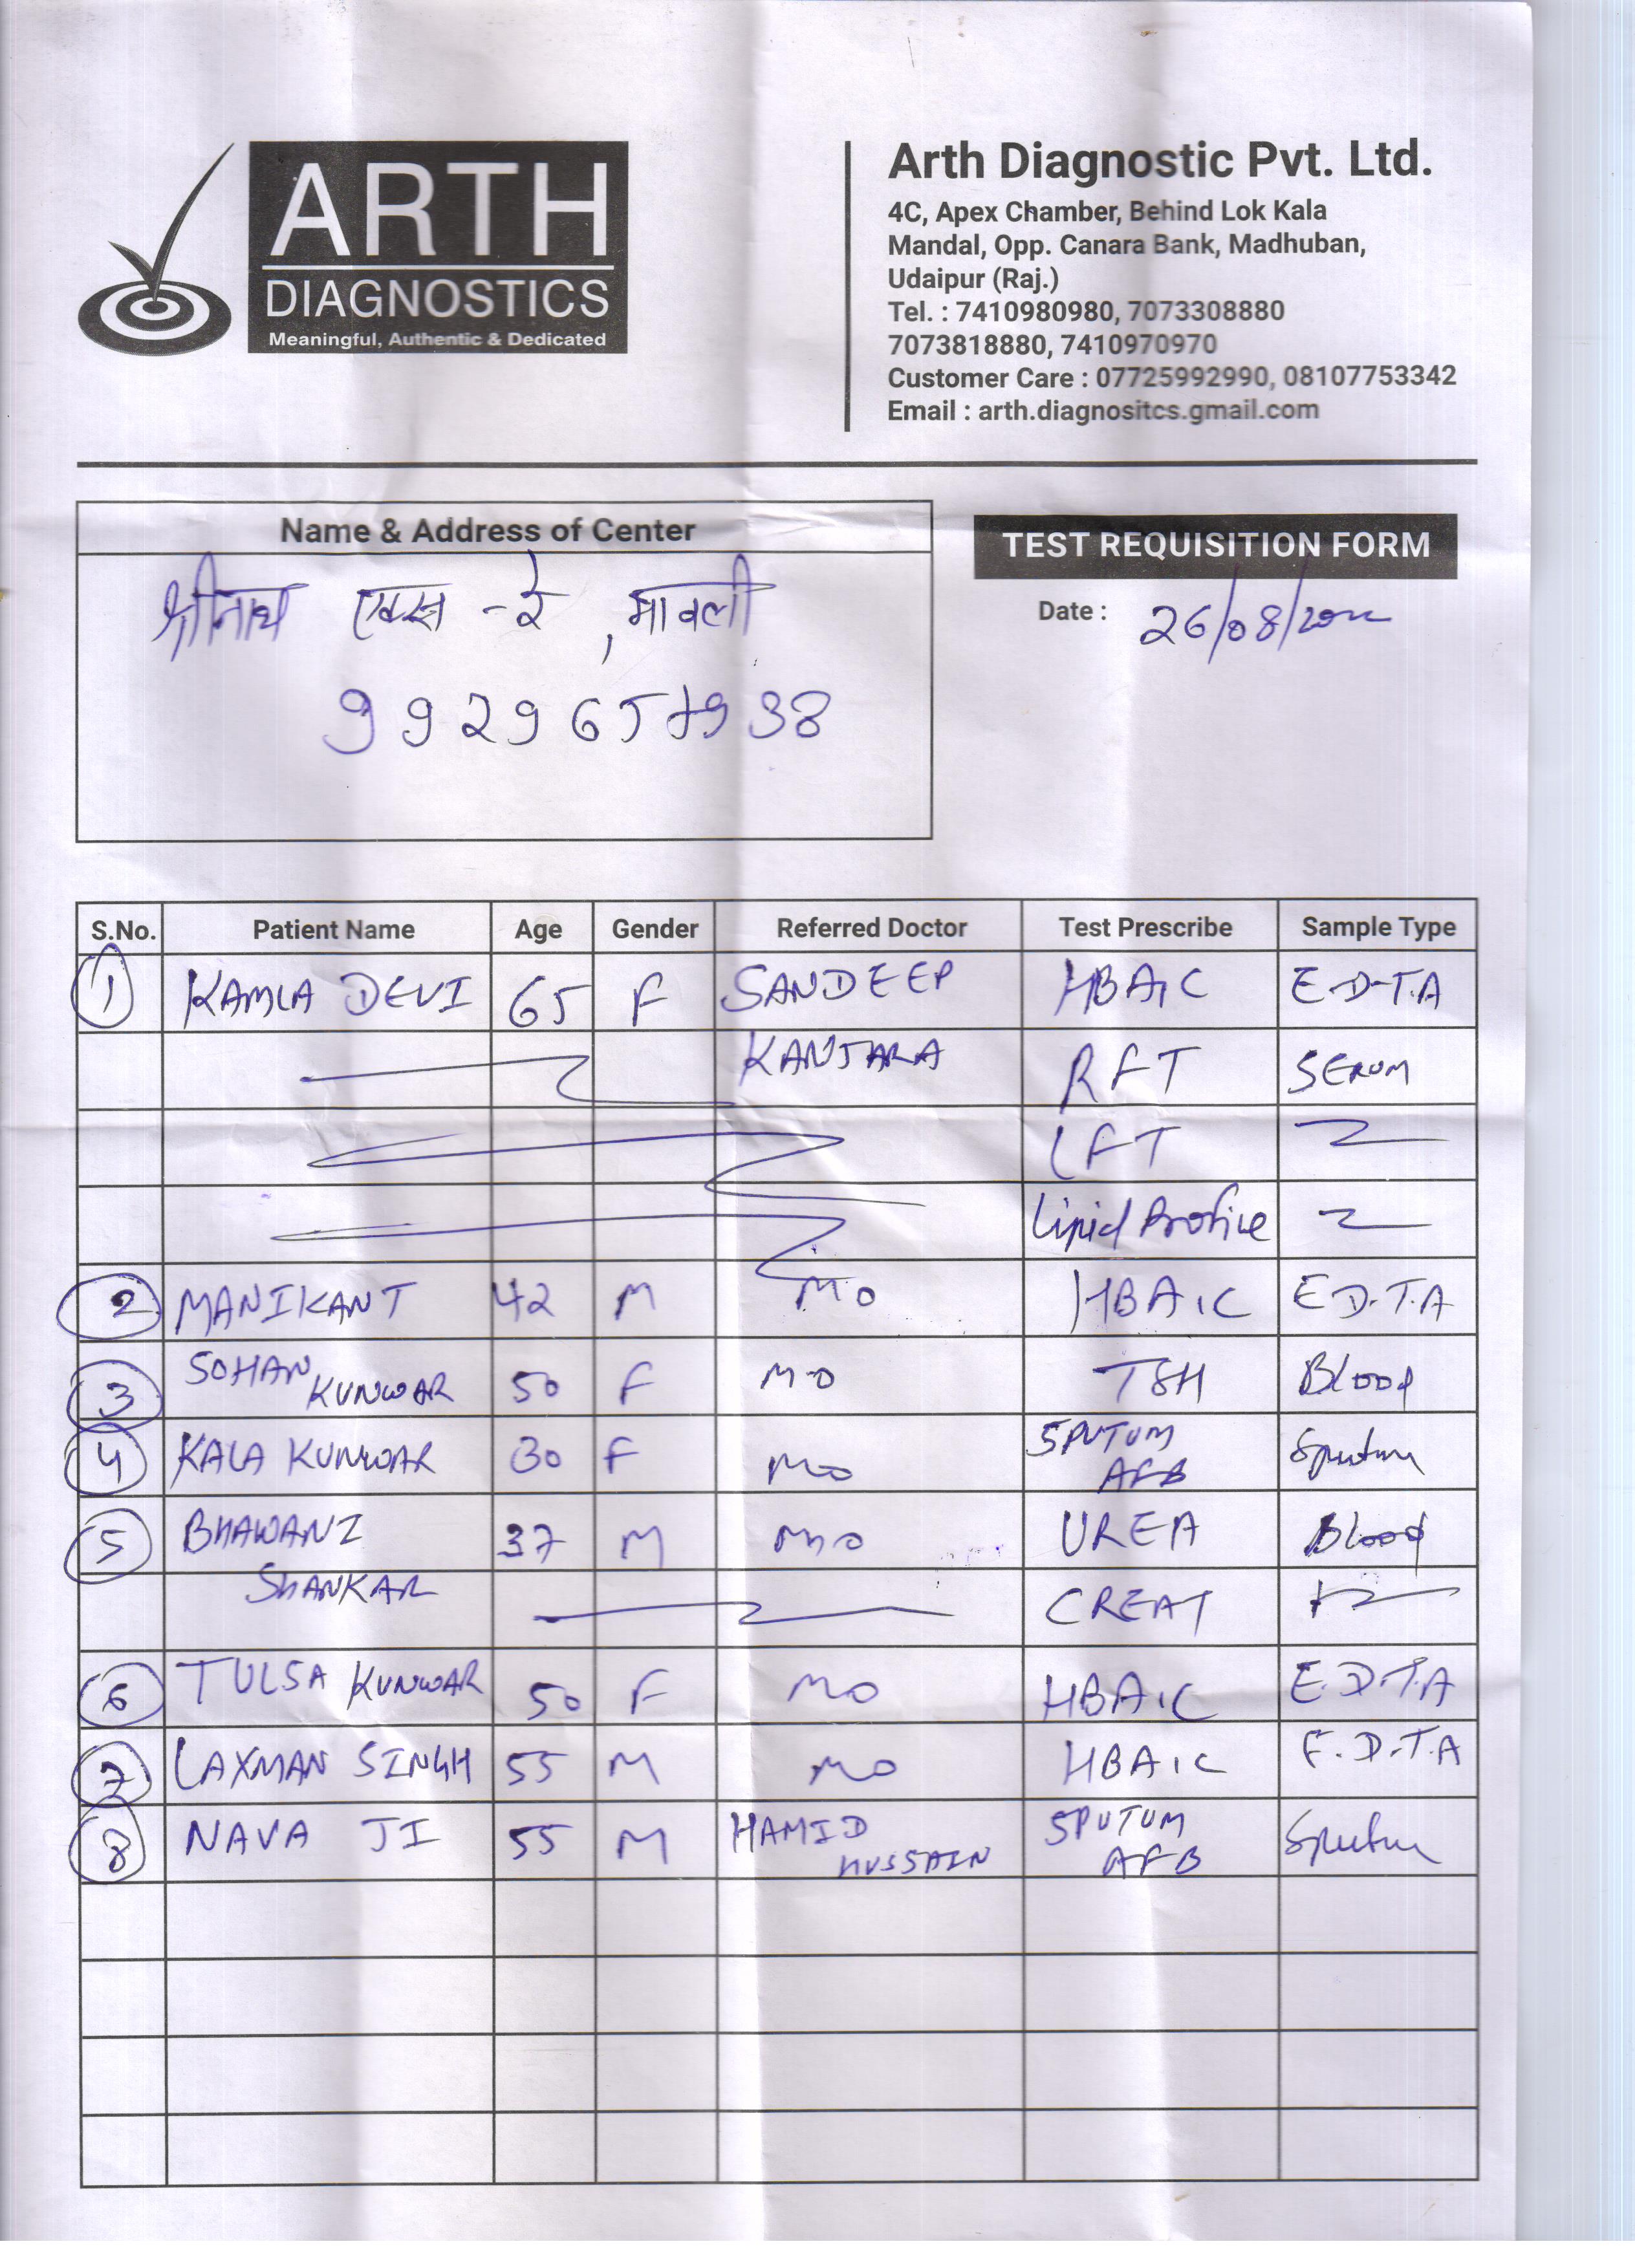 ARTH
DIAGNOSTICS
Meaningful, Authentic & Dedicated
Arth Diagnostic Pvt. Ltd.
4C, Apex Chamber, Behind Lok Kala
Mandal, Opp. Canara Bank, Madhuban,
Udaipur (Raj.)
Tel. : 7410980980, 7073308880
7073818880, 7410970970
Customer Care : 07725992990, 08107753342
Email : arth.diagnositcs.gmail.com
Name & Address of Center
श्रीनाथ एक्स-रे, मावली
9929657938
TEST REQUISITION FORM
Date : 26/08/2022
S.No. Patient Name Age Gender Referred Doctor Test Prescribe Sample Type
1 KAMLA DEVI 65 F SANDEEP HBA1C E.D.T.A
KANJARA RFT SERUM
LFT
Lipid Profile
2 MANIKANT 42 M MO HBA1C E.D.T.A
3 SOHAN KUNWAR 50 F MO TSH Blood
4 KALA KUNWAR 30 F MO SPUTUM AFB Sputum
5 BHAWANI 37 M MO UREA Blood
SHANKAR CREAT
6 TULSA KUNWAR 50 F MO HBA1C E.D.T.A
7 LAXMAN SINGH 55 M MO HBA1C E.D.T.A
8 NAVA JI 55 M HAMID HUSSAIN SPUTUM AFB Sputum